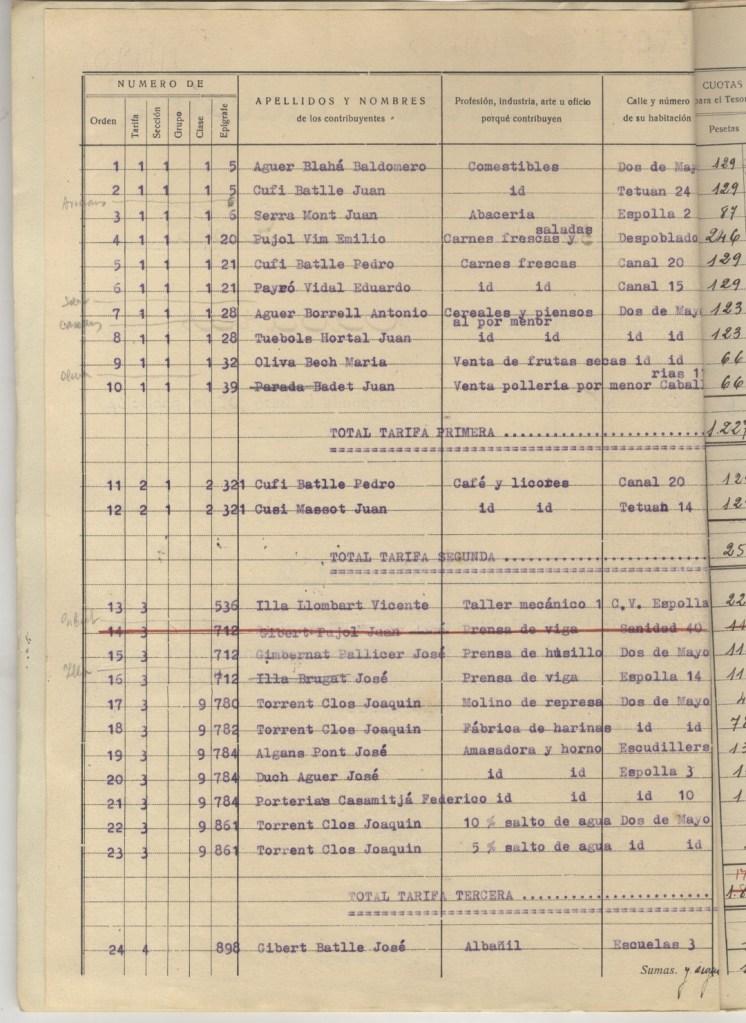 NUMERO DE
CUOTAS
para el Tesoro
Orden Tarifa Sección Grupo Clase Epígrafe
APELLIDOS Y NOMBRES
de los contribuyentes
Profesión, industria, arte u oficio
porqué contribuyen
Calle y número
de su habitación
Pesetas
1 1 1 1 5 Aguer Blahá Baldomero Comestibles Dos de May 129
2 1 1 1 5 Cufi Batlle Juan id Tetuan 24 129
3 1 1 1 6 Serra Mont Juan Abaceria Espolla 2 87
saladas
4 1 1 1 20 Pujol Vim Emilio Carnes frescas y Despoblado 246
5 1 1 1 21 Cufi Batlle Pedro Carnes frescas Canal 20 129
6 1 1 1 21 Payró Vidal Eduardo id id Canal 15 129
7 1 1 1 28 Aguer Borrell Antonio Cereales y piensos Dos de Mayo 123
al por menor
8 1 1 1 28 Tuebols Hortal Juan id id id id 123
9 1 1 1 32 Oliva Bech Maria Venta de frutas secas id id 66
rias 11
10 1 1 1 39 Parada Badet Juan Venta polleria por menor Caball 66
TOTAL TARIFA PRIMERA .......................... 1.227
11 2 1 2 321 Cufi Batlle Pedro Café y licores Canal 20 12
12 2 1 2 321 Cusi Massot Juan id id Tetuan 14 12
TOTAL TARIFA SEGUNDA .......................... 25
13 3 536 Illa Llombart Vicente Taller mecánico 1 C.V. Espolla 22
14 3 712 Gibert Pujol Juan José Prensa de viga Sanidad 40 14
15 3 712 Gimbernat Pallicer José Prensa de húsillo Dos de Mayo 11
16 3 712 Illa Brugat José Prensa de viga Espolla 14 11
17 3 9 780 Torrent Clos Joaquin Molino de represa Dos de Mayo 4
18 3 9 782 Torrent Clos Joaquin Fábrica de harinas id id 72
19 3 9 784 Algans Pont José Amasadora y horno Escudillers 13
20 3 9 784 Duch Aguer José id id Espolla 3 1
21 3 9 784 Porterias Casamitjá Federico id id id 10 1
22 3 9 861 Torrent Clos Joaquin 10 % salto de agua Dos de Mayo
23 3 9 861 Torrent Clos Joaquin 5 % salto de agua id id
TOTAL TARIFA TERCERA ........................
24 4 898 Gibert Batlle José Albañil Escuelas 3
Sumas. y sigue